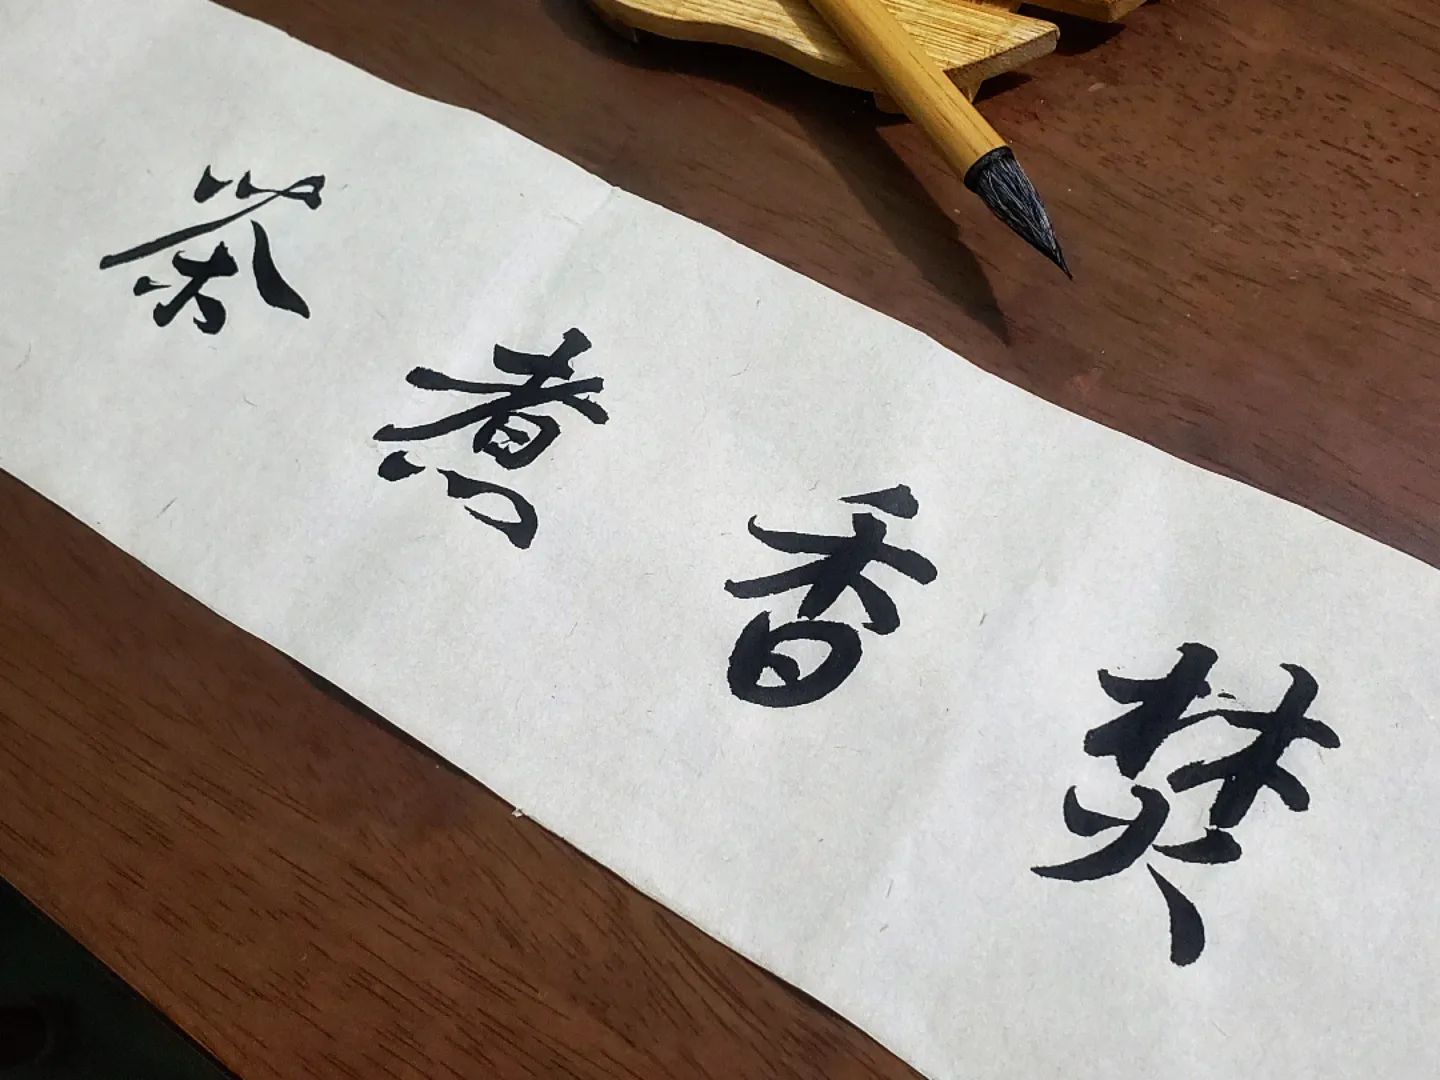 焚香煮茶